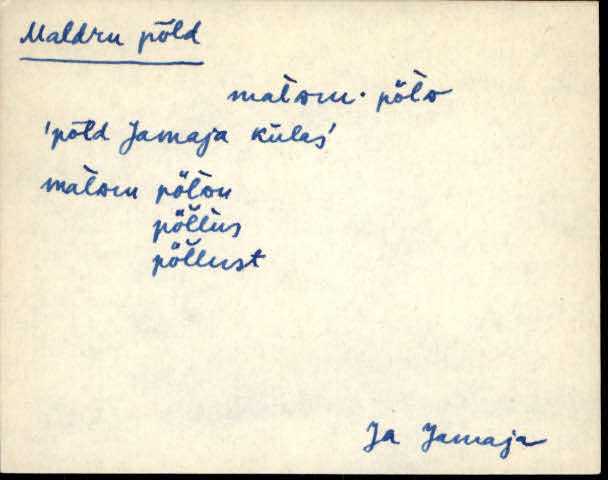 Maldru põld
mal̆dru· pöl̆d
'põld Jamaja külas'
mal̆dru pöl̆du
pöl̆lus
pöl̆lust
Ja Jamaja